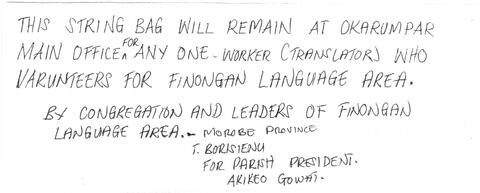 THIS STRING BAG WILL REMAIN AT OKARUMPAR
MAIN OFFICE FOR ANY ONE - WORKER (TRANSLATOR) WHO
VARUNTEERS FOR FINONGAN LANGUAGE AREA.
BY CONGREGATION AND LEADERS OF FINONGAN
LANGUAGE AREA. - MOROBE PROVINCE
T. BORISIENU
FOR PARISH PRESIDENT.
AKIKEO GOWAT.